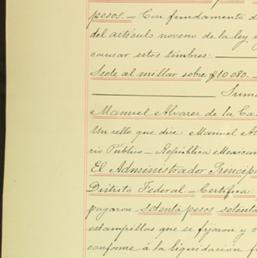 pesos.— Con fundamento d
del artículo noveno de la ley
causar estos timbres:
Siete al millar sobre $10.080.—
Suma
Manuel Alvarez de la Ca
Un sello que dice: Manuel A
rio Público.— República Mexican
El Administrador Princip
Distrito Federal.— Certifica
pagaron setenta pesos setent
estampillas que se fijaron y
conforme á la liquidación